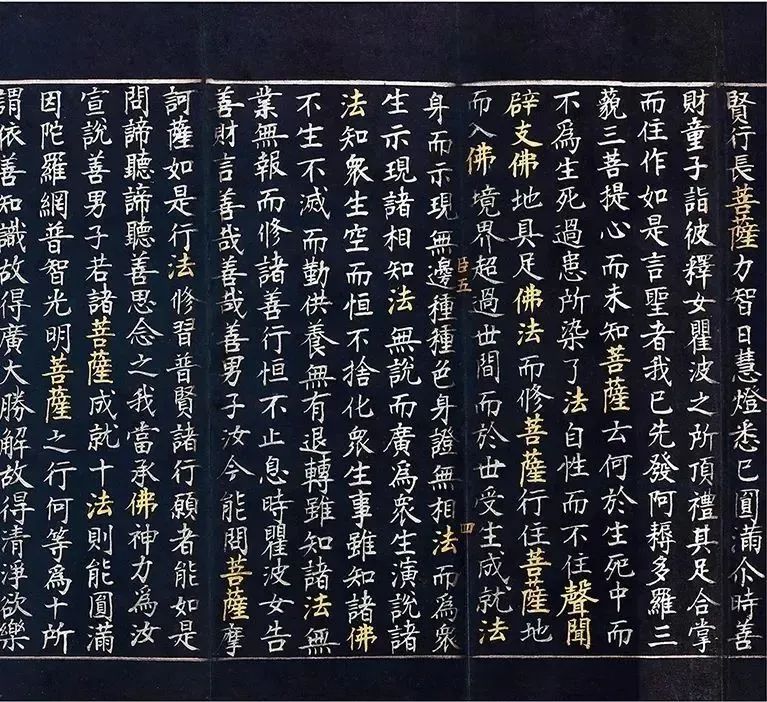 賢行長菩薩力智日慧燈悉已圓滿尒時善
財童子詣彼釋女瞿波之所頂禮其足合掌
而住作如是言聖者我已先發阿耨多羅三
藐三菩提心而未知菩薩云何於生死中而
不為生死過患所染了法自性而不住聲聞
辟支佛地具足佛法而修菩薩行住菩薩地
而入佛境界超過世間而於世受生成就法
身而示現無邊種種色身證無相法而為衆
生示現諸相知法無說而廣為衆生演說諸
法知衆生空而恒不捨化衆生事雖知諸佛
不生不滅而勤供養無有退轉雖知諸法無
業無報而修諸善行恒不止息時瞿波女告
善財言善哉善哉善男子汝今能問菩薩摩
訶薩如是行法修習普賢諸行願者能如是
問諦聽諦聽善思念之我當承佛神力為汝
宣說善男子若諸菩薩成就十法則能圓滿
因陀羅網普智光明菩薩之行何等為十所
謂依善知識故得廣大勝解故得清淨欲樂
廿五
四